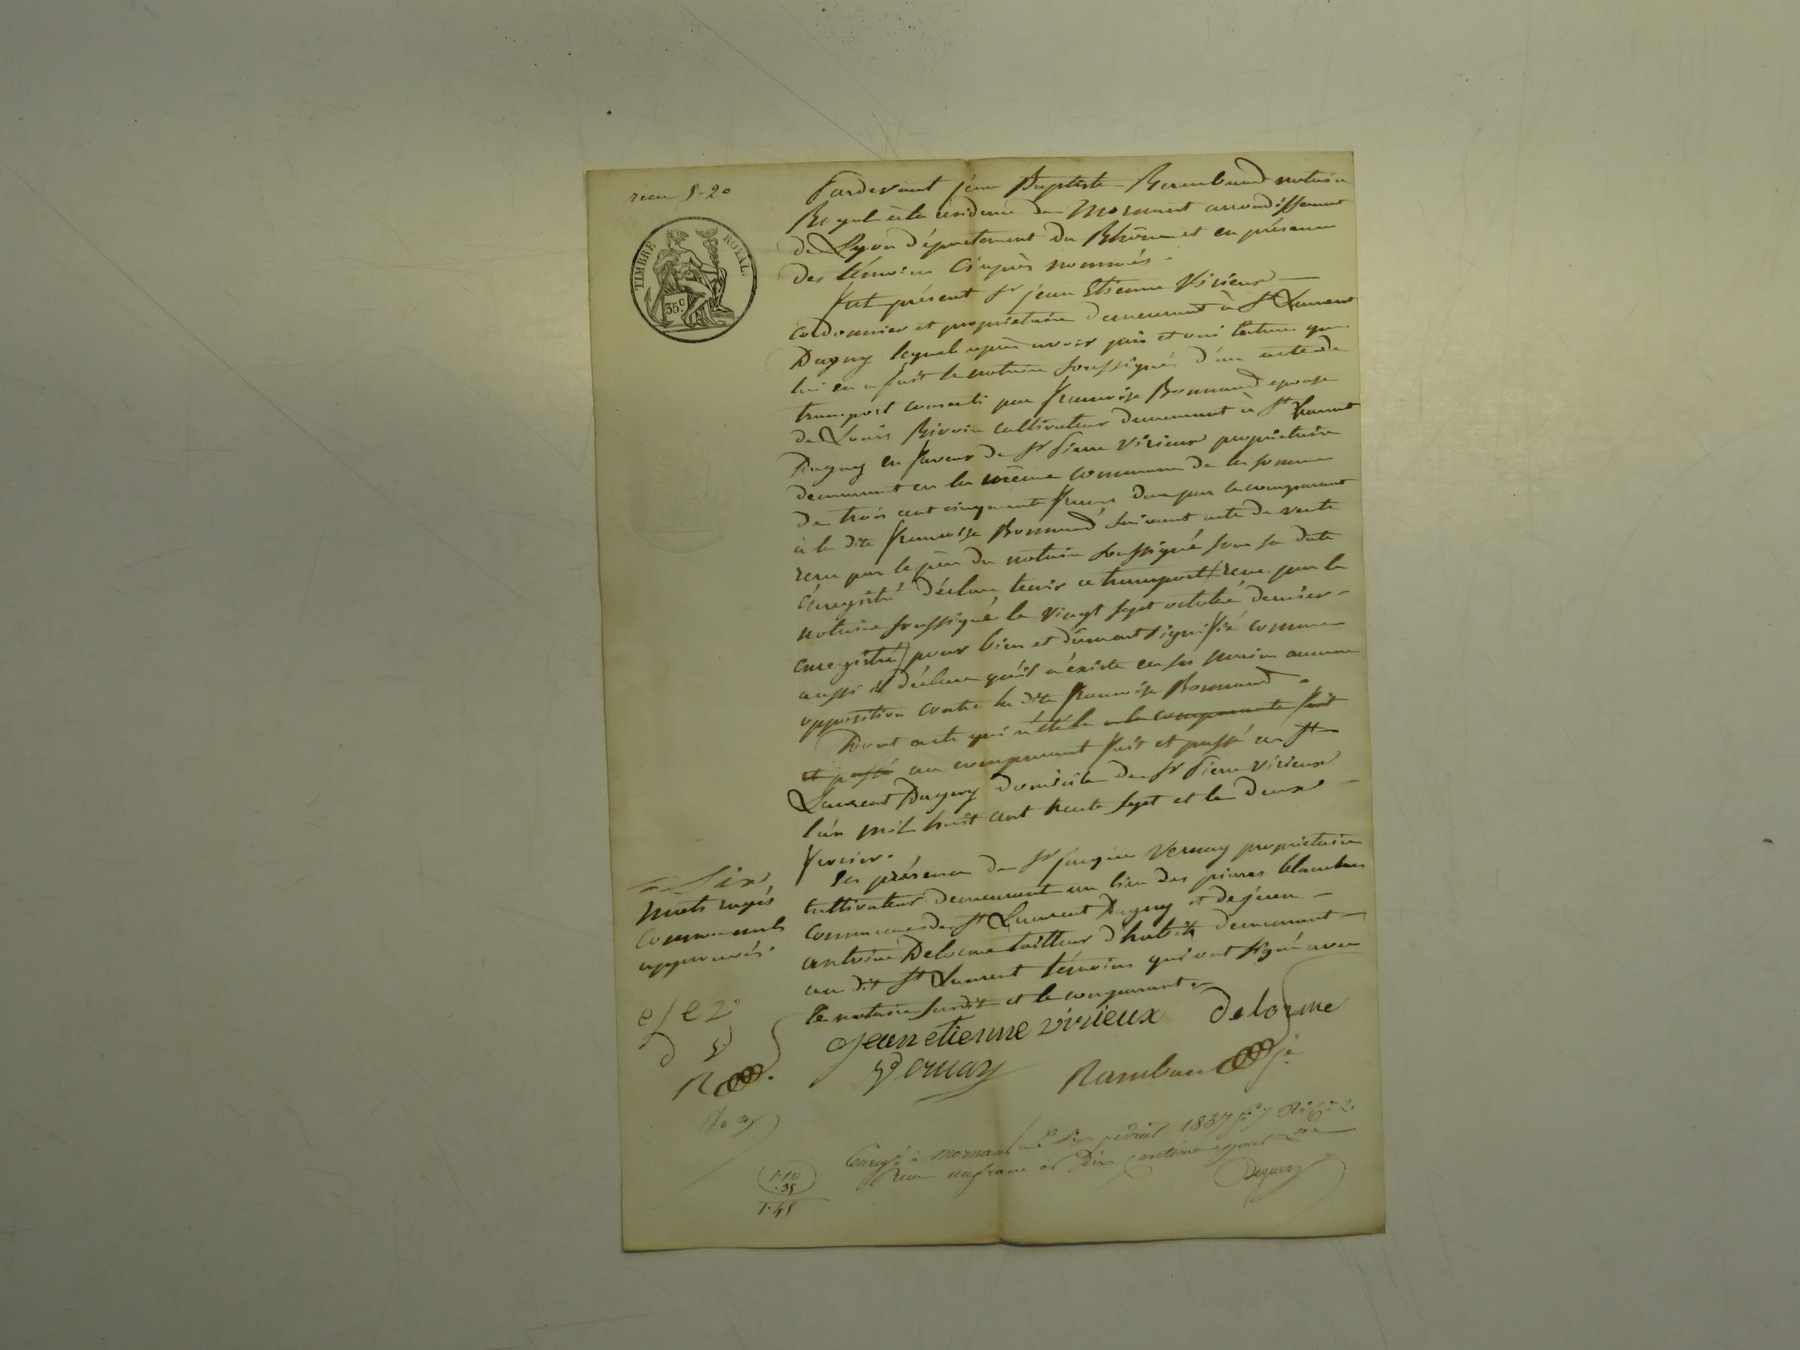 recu 5-20
TIMBRE ROYAL.
35 c.
Pardevant jean Baptiste Rambaud notaire
Royal à la résidence de Mornant arrondissement
de Lyon département du Rhône et en présence
des témoins ci après nommés.
fut présent Sr jean Etienne Virieux
cordonnier et propriétaire demeurant à St Laurent
Dagny lequel après avoir pris et oui lecture que
lui en a fait le notaire soussigné d'un acte de
transport consenti par françoise Bonnand epouse
de Louis Rivoire cultivateur demeurant à St Laurent
Dagny en faveur de Sr Pierre Virieux propriétaire
demeurant en la même commune de la somme
de trois cent cinquante francs due par le comparant
à la dite françoise Bonnand suivant acte de vente
recu par le père du notaire soussigné sous sa date
Enregistré déclare tenir ce transport (recu par le
notaire soussigné le vingt sept octobre dernier
enregistré) pour bien et dûment signifié comme
aussi il déclare qu'il n'existe en ses mains aucune
opposition contre la dite françoise Bonnand.
Dont acte qui a été lu a la comparante fait
et passé au comparant fait et passé en St
Laurent Dagny domicile de Sr Pierre Virieux
l'an mil huit cent trente sept et le deux
fevrier.
En présence de Sr Vernay propriétaire
cultivateur demeurant au lieu des pierres blanches
commune de St Laurent Dagny et de jean
antoine Delorme tailleur d'habits demeurant
au dit St Laurent témoins qui ont signé avec
le notaire susdit et le comparant.
= Six
mots rayés
comme nuls
approuvés
jean etienne virieux delorme
Vernay Rambaud je
R
Enregté à mornant Le Six février 1837 fo 7
Recu un franc et dix centimes
1.10
.35
1.45